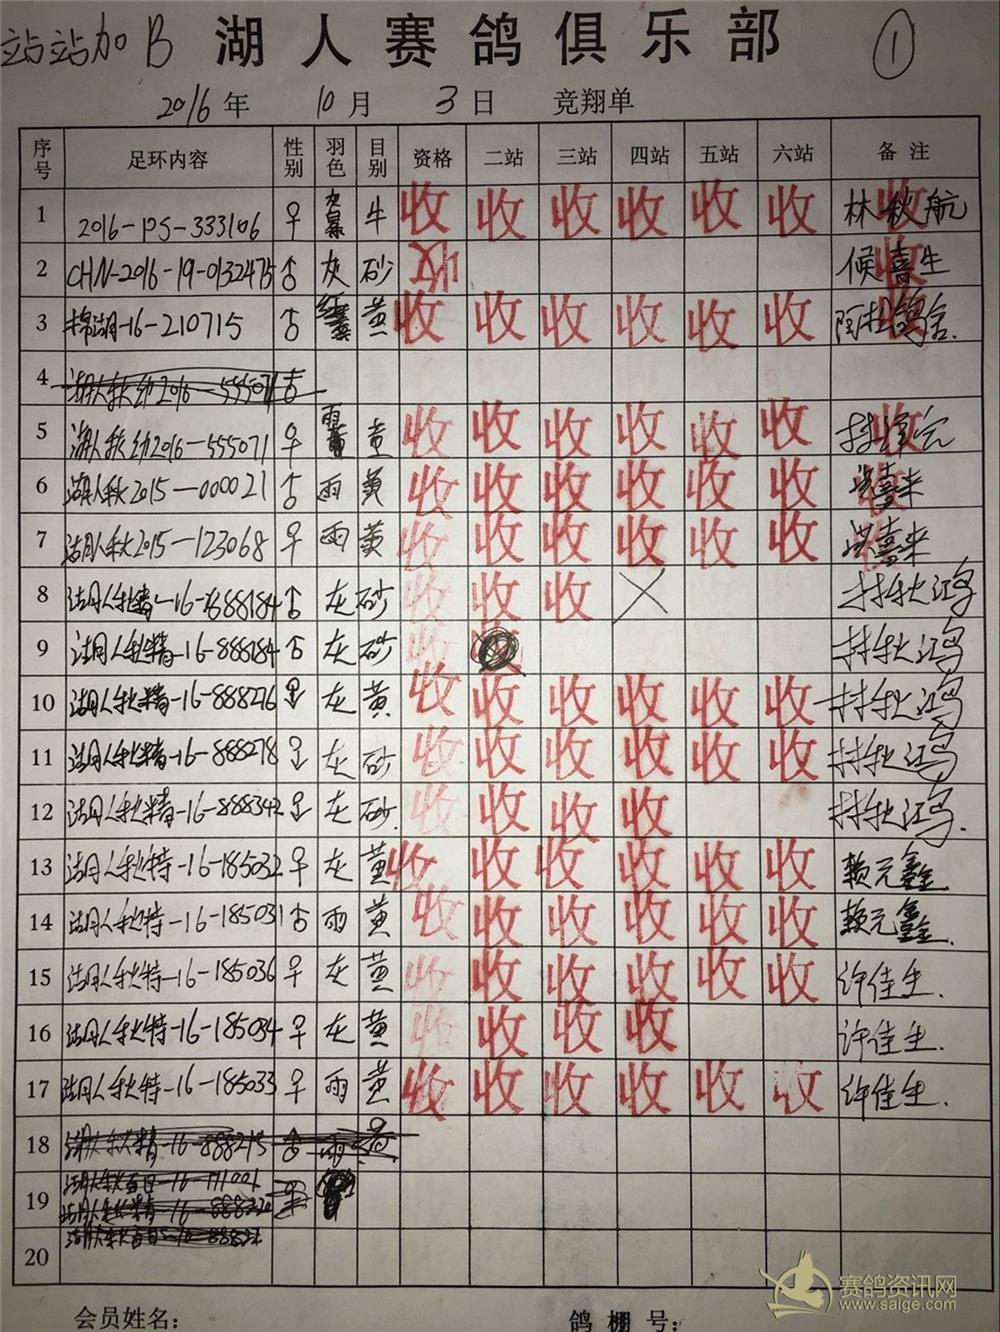 站站加B 湖人赛鸽俱乐部 ①
2016年 10月 3日 竞翔单
序号 足环内容 性别 羽色 目别 资格 二站 三站 四站 五站 六站 备注
1 2016-PS-333106 ♀ 牛 收 收 收 收 收 收 林秋航 收
2 CHN-2016-19-0132475 ♂ 灰 砂 候喜生 收
3 棉湖-16-210715 ♂ 黄 收 收 收 收 收 收
4 湖人秋幼2016-555071
5 湖人秋幼2016-555071 ♀ 黄 收 收 收 收 收 收
6 湖人秋2015-000021 ♂ 雨 黄 收 收 收 收 收 收 洪喜来
7 湖人秋2015-123068 ♀ 雨 黄 收 收 收 收 收 收 洪喜来
8 湖人秋精-16-888184 ♂ 灰 砂 收 收 收 X 林秋鸿
9 湖人秋精-16-888184 ♂ 灰 砂 收 林秋鸿
10 湖人秋精-16-888276 灰 黄 收 收 收 收 收 收 林秋鸿
11 湖人秋精-16-888278 灰 砂 收 收 收 收 收 收 林秋鸿
12 湖人秋精-16-888342 灰 砂 收 收 收 收 林秋鸿.
13 湖人秋特-16-185032 ♀ 灰 黄 收 收 收 收 收 收 赖元鑫
14 湖人秋特-16-185031 雨 黄 收 收 收 收 收 收 赖元鑫.
15 湖人秋特-16-185036 ♀ 灰 黄 收 收 收 收 收 收 许佳生.
16 湖人秋特-16-185034 ♀ 灰 黄 收 收 收 收 许佳生.
17 湖人秋特-16-185033 ♀ 雨 黄 收 收 收 收 收 收 许佳生.
18 湖人秋精-16-888215 雨
19
20
会员姓名： 鸽棚号：
赛鸽资讯网
www.saige.com